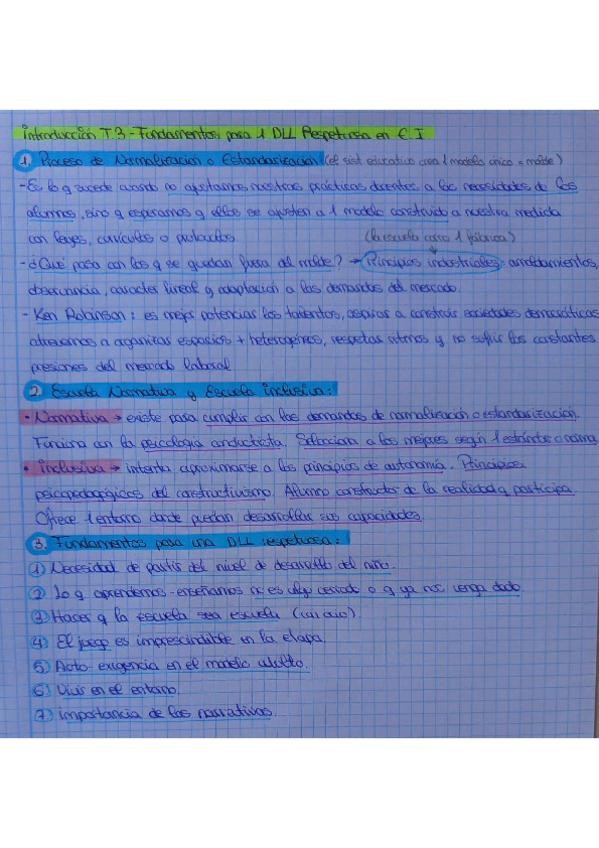 introducción T.3 - Fundamentos para 1 DLL Respetuosa en E.I
1. Proceso de Normalización o Estandarización (el sist educativo crea 1 modelo único = molde)
- Es lo q sucede cuando no ajustamos nuestras prácticas docentes a las necesidades de los
alumnos, sino q esperamos q ellos se ajusten a 1 modelo construido a nuestra medida
con leyes, currículos o protocolos.
(la escuela como 1 fábrica)
- ¿Qué pasa con los q se quedan fuera del molde? → Principios industriales: amoldamientos,
observancia, carácter lineal y adaptación a las demandas del mercado.
- Ken Robinson: es mejor potenciar los talentos, aspirar a construir sociedades democráticas
atrevernos a organizar espacios + heterogéneos, respetar ritmos y no sufrir las constantes
presiones del mercado laboral
2. Escuela Normativa y Escuela inclusiva:
• Normativa → existe para cumplir con las demandas de normalización o estandarización.
Funciona con la psicología conductista. Selecciona a los mejores según 1 estándar o norma.
• inclusiva → intenta aproximarse a los principios de autonomía. Principios
psicopedagógicos del constructivismo. Alumno constructor de la realidad q participa.
Ofrece 1 entorno donde puedan desarrollar sus capacidades.
3. Fundamentos para una DLL respetuosa:
1) Necesidad de partir del nivel de desarrollo del niño.
2) Lo q aprendemos-enseñamos no es algo cerrado o q ya nos venga dado.
3) Hacer q la escuela sea escuela
4) El juego es imprescindible en la etapa.
5) Auto-exigencia en el modelo adulto.
6) Vivir en el entorno.
7) importancia de las narrativas.